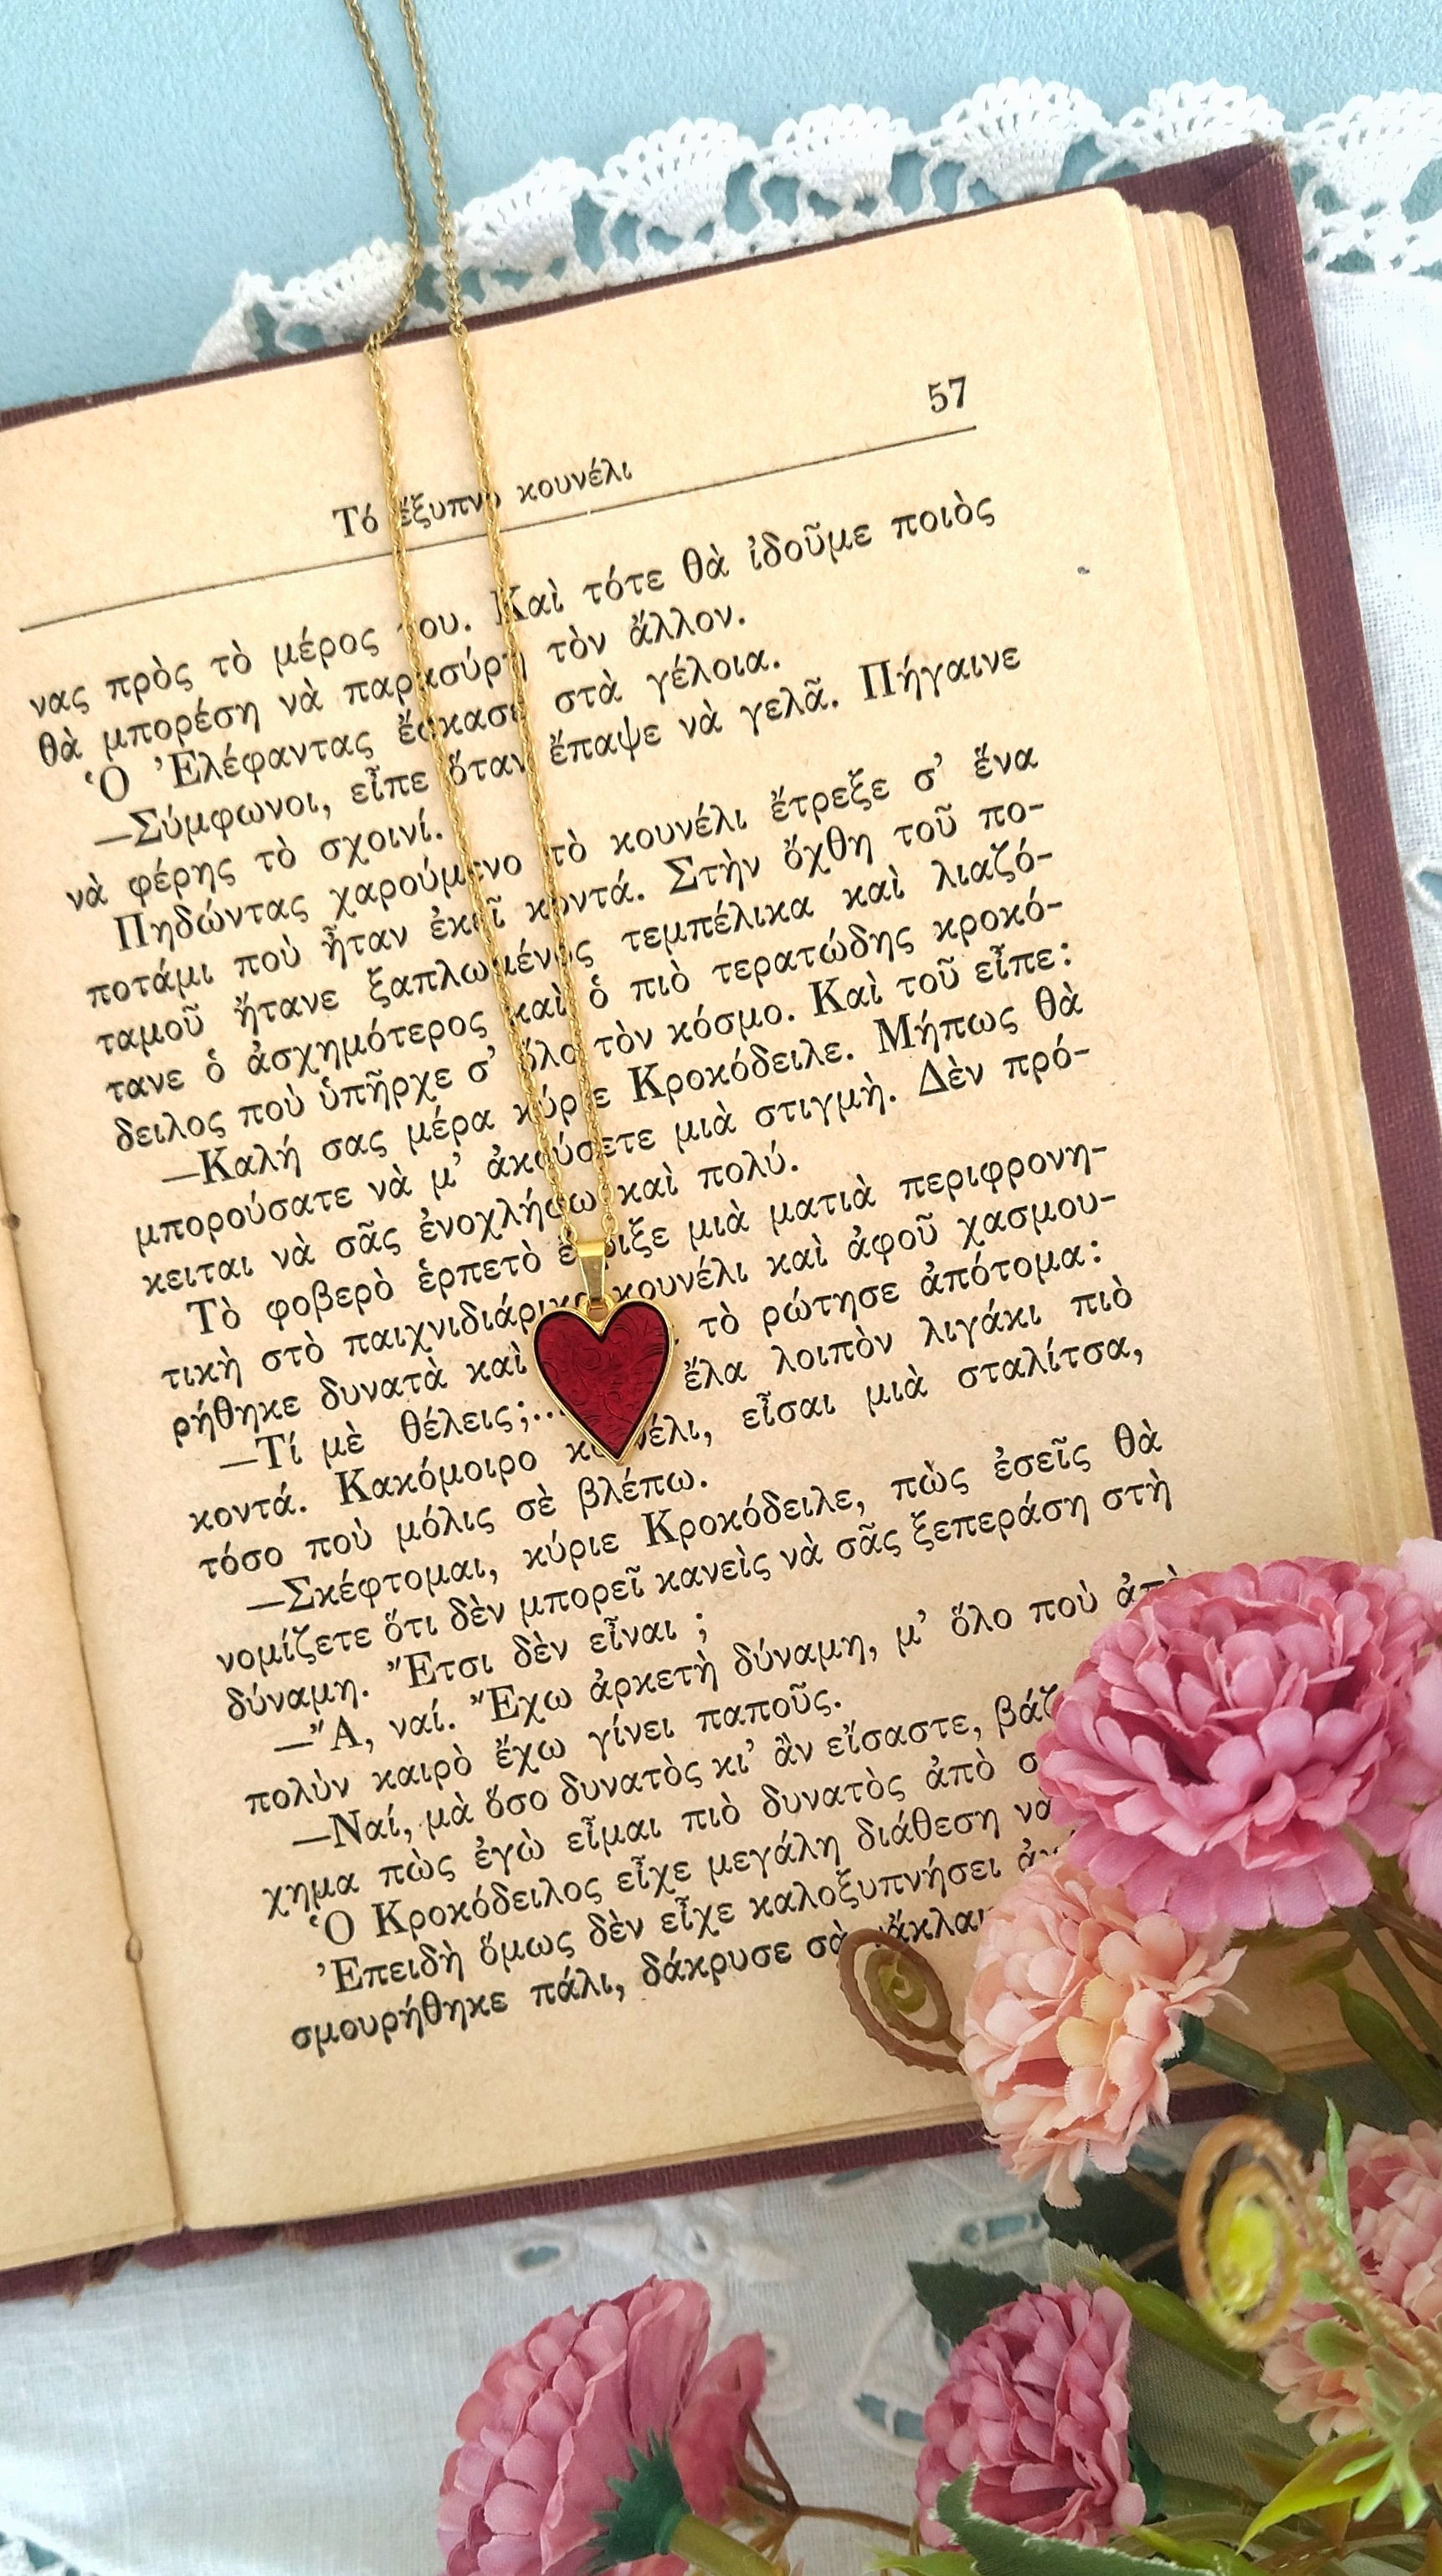 57
Τό ἔξυπνο κουνέλι
νας πρὸς τὸ μέρος του. Καὶ τότε θὰ ἰδοῦμε ποιὸς
θὰ μπορέση νὰ παρασύρη τὸν ἄλλον.
Ὁ Ἐλέφαντας ἔσκασε στὰ γέλοια.
—Σύμφωνοι, εἶπε ὅταν ἔπαψε νὰ γελᾶ. Πήγαινε
νὰ φέρης τὸ σχοινί.
Πηδώντας χαρούμενο τὸ κουνέλι ἔτρεξε σ’ ἕνα
ποτάμι ποὺ ἦταν ἐκεῖ κοντά. Στὴν ὄχθη τοῦ πο-
ταμοῦ ἤτανε ξαπλωμένος τεμπέλικα καὶ λιαζό-
τανε ὁ ἀσχημότερος καὶ ὁ πιὸ τερατώδης κροκό-
δειλος ποὺ ὑπῆρχε σ’ ὅλο τὸν κόσμο. Καὶ τοῦ εἶπε:
—Καλή σας μέρα κύριε Κροκόδειλε. Μήπως θὰ
μπορούσατε νὰ μ’ ἀκούσετε μιὰ στιγμὴ. Δὲν πρό-
κειται νὰ σᾶς ἐνοχλήσω καὶ πολύ.
Τὸ φοβερὸ ἑρπετὸ ἔρριξε μιὰ ματιὰ περιφρονη-
τικὴ στὸ παιχνιδιάρικο κουνέλι καὶ ἀφοῦ χασμου-
ρήθηκε δυνατὰ καὶ τὸ ρώτησε ἀπότομα:
—Τί μὲ θέλεις;... ἔλα λοιπὸν λιγάκι πιὸ
κοντά. Κακόμοιρο κουνέλι, εἶσαι μιὰ σταλίτσα,
τόσο ποὺ μόλις σὲ βλέπω.
—Σκέφτομαι, κύριε Κροκόδειλε, πὼς ἐσεῖς θὰ
νομίζετε ὅτι δὲν μπορεῖ κανεὶς νὰ σᾶς ξεπεράση στὴ
δύναμη. Ἔτσι δὲν εἶναι ;
—Ἄ, ναί. Ἔχω ἀρκετὴ δύναμη, μ’ ὅλο ποὺ ἀπὸ
πολὺν καιρὸ ἔχω γίνει παποῦς.
—Ναί, μὰ ὅσο δυνατὸς κι’ ἂν εἴσαστε,
χημα πὼς ἐγὼ εἶμαι πιὸ δυνατὸς ἀπὸ
Ὁ Κροκόδειλος εἶχε μεγάλη διάθεση
Ἐπειδὴ ὅμως δὲν εἶχε καλοξυπνήσει
σμουρήθηκε πάλι, δάκρυσε σὰ